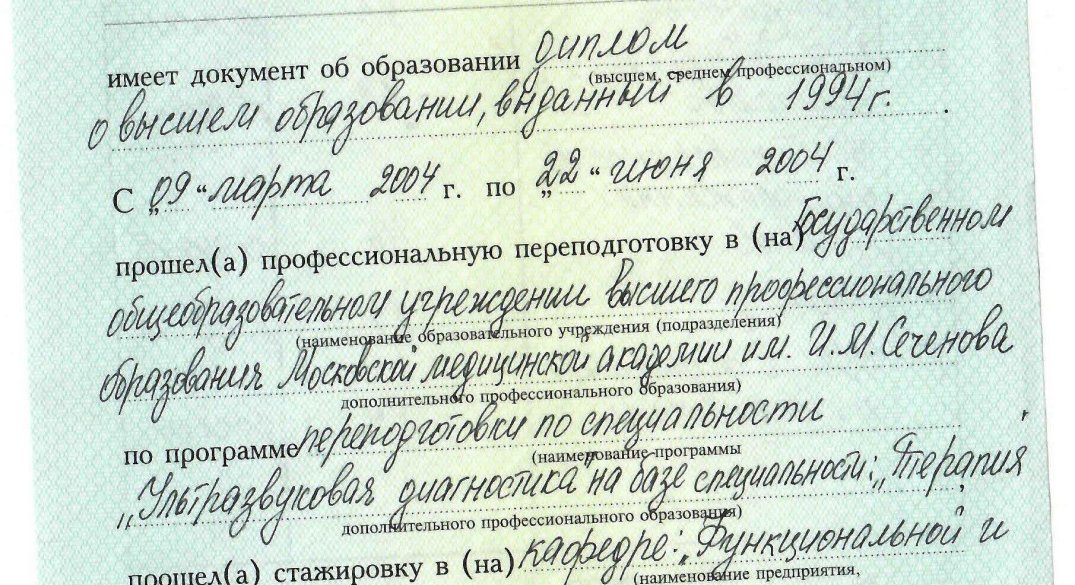 имеет документ об образовании диплом
(высшем, среднем профессиональном)
о высшем образовании, выданный в 1994 г.
С „09“ марта 2004 г. по „22“ июня 2004 г.
прошел(а) профессиональную переподготовку в (на) Государственном
общеобразовательном учреждении высшего профессионального
(наименование образовательного учреждения (подразделения)
образования Московской медицинской академии им. И.М. Сеченова
дополнительного профессионального образования)
по программе переподготовки по специальности
(наименование программы
„Ультразвуковая диагностика“ на базе специальности: „Терапия“
дополнительного профессионального образования)
прошел(а) стажировку в (на) кафедре: „Функциональной и
(наименование предприятия,